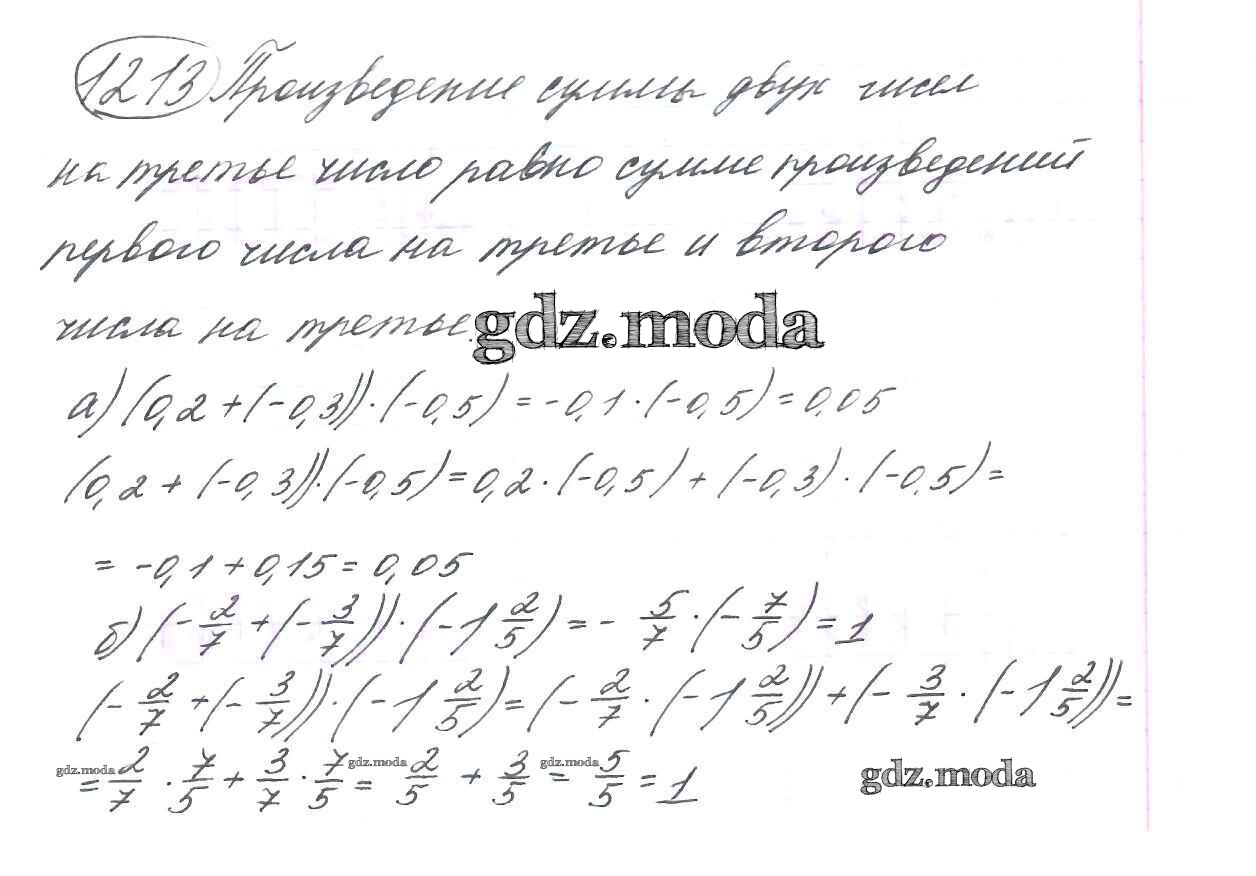 1213 Произведение суммы двух чисел
на третье число равно сумме произведений
первого числа на третье и второго
числа на третье.
gdz.moda
а) (0,2 + (-0,3)) · (-0,5) = -0,1 · (-0,5) = 0,05
(0,2 + (-0,3)) · (-0,5) = 0,2 · (-0,5) + (-0,3) · (-0,5) =
= -0,1 + 0,15 = 0,05
б) (-2/7 + (-3/7)) · (-1 2/5) = - 5/7 · (-7/5) = 1
(-2/7 + (-3/7)) · (-1 2/5) = (-2/7 · (-1 2/5)) + (-3/7 · (-1 2/5)) =
gdz.moda = 2/7 · 7/5 + 3/7 · 7/5 gdz.moda = 2/5 + 3/5 gdz.moda = 5/5 = 1
gdz.moda